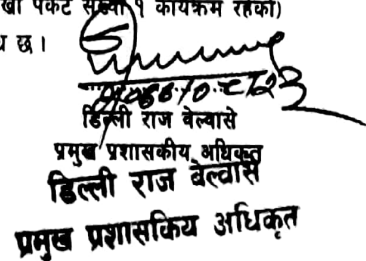 पकेट संख्या १ कार्यक्रम रहेको)
छ।
डिल्ली राज वेल्वासे
प्रमुख प्रशासकीय अधिकृत
डिल्ली राज बेल्वासे
प्रमुख प्रशासकिय अधिकृत